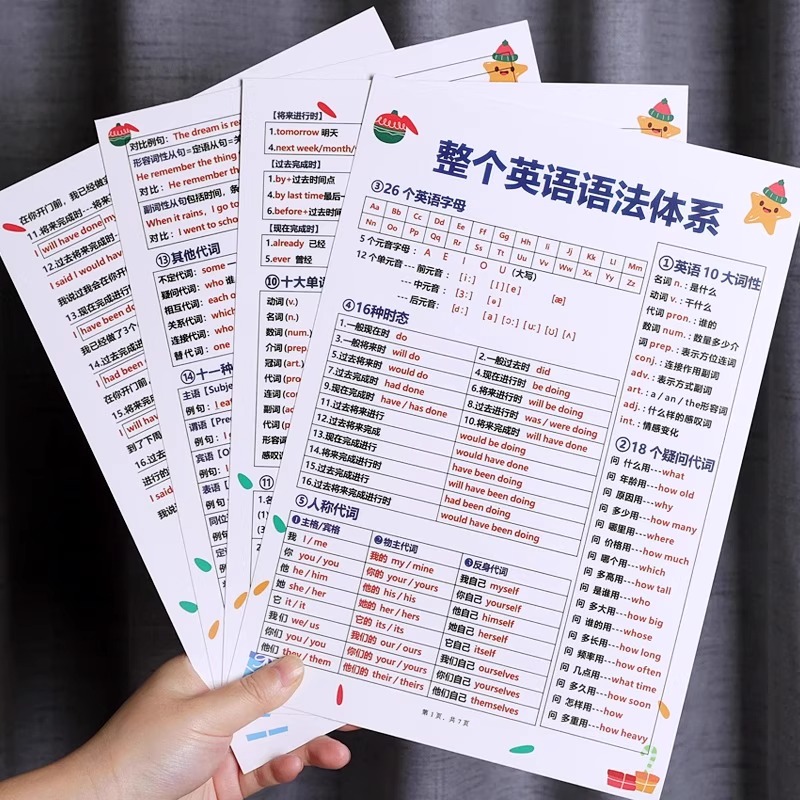 在你开门前，我已经做
11.将来完成时---将来
I will have done my
12.过去将来完成时--
I said I would have
我说过我会在你开
13.现在完成进行时
I have been do
我已经做了3个
14.过去完成进
I had been
在你开门前，
15.将来完
I will hav
到了下周
16.过去
进行的
I said
我说
对比例句：The dream is re
形容词性从句=定语从句=关
He remember the thing
对比：He remember the
副词性从句包括时间，条
When it rains, I go to
对比：I went to scho
⑬其他代词
不定代词：some
疑问代词：who 谁
相互代词：each
关系代词：which
连接代词：who
替 代词：one
⑭十一种
主语【Subje
例 句：I ea
谓语【Pre
例句：I
宾语【O
例句：
表语【
例句
同位
例
定
例
【将来进行时】
1.tomorrow 明天
4.next week/month/
【过去完成时】
1.by+过去时间点
4.by last time最后一
6.before+过去时间
【现在完成时】
1.already 已经
5.ever 曾经
⑩十大单词
动词 (v.)
名词 (n.)
数词 (num.)
介词 (prep
冠词 (art.)
代词 (pro
连词 (con
副词 (ad
代词 (p
形容词
感叹词
⑪
1.名
(1)
(3)
2.
整个英语语法体系
③26 个英语字母
Aa Bb Cc Dd Ee Ff Gg Hh Ii Jj Kk Ll Mm
Nn Oo Pp Qq Rr Ss Tt Uu Vv Ww Xx Yy Zz
5 个元音字母： A E I O U (大写)
12 个单元音 --- 前元音： [iː] [I] [e] [æ]
--- 中元音： [ɜː] [ə]
--- 后元音： [ɑː] [ɔ] [ɔː] [uː] [ʊ] [ʌ]
④16种时态
1.一般现在时 do
2.一般过去时 did
3.一般将来时 will do
4.现在进行时 be doing
5.过去将来时 would do
6.将来进行时 will be doing
7.过去完成时 had done
8.过去进行时 was / were doing
9.现在完成时 have / has done
10.将来完成时 will have done
11.过去将来进行 would be doing
12.过去将来完成 would have done
13.现在完成进行 have been doing
14.将来完成进行 will have been doing
15.过去完成进行 had been doing
16.过去将来完成进行 would have been doing
⑤人称代词
❶主格/宾格 ❷物主代词 ❸反身代词
我 I / me 我的 my / mine 我自己 myself
你 you / you 你的 your / yours 你自己 yourself
他 he / him 他的 his / his 他自己 himself
她 she / her 她的 her / hers 她自己 herself
它 it / it 它的 its / its 它自己 itself
我们 we/ us 我们的 our / ours 我们自己 ourselves
你们 you / you 你们的 your / yours 你们自己 yourselves
他们 they / them 他们的 their / theirs 他们自己 themselves
①英语 10 大词性
名词 n.：是什么
动词 v.：干什么
代词 pron.：谁的
数词 num.：数量多少介
词 prep.：表示方位连词
conj.：连接作用副词
adv.：表示方式副词
art.：a / an / the形容词
adj.：什么样的感叹词
int.：情感变化
②18 个疑问代词
问 什么用---what
问 年龄用---how old
问 原因用---why
问 多少用---how many
问 哪里用---where
问 价格用---how much
问 哪个用---which
问 多高用---how tall
问 是谁用---who
问 多大用---how big
问 谁的用---whose
问 多长用---how long
问 频率用---how often
问 几点用---what time
问 多久用---how soon
问 怎样用---how
问 多重用---how heavy
第 1 页，共 7 页